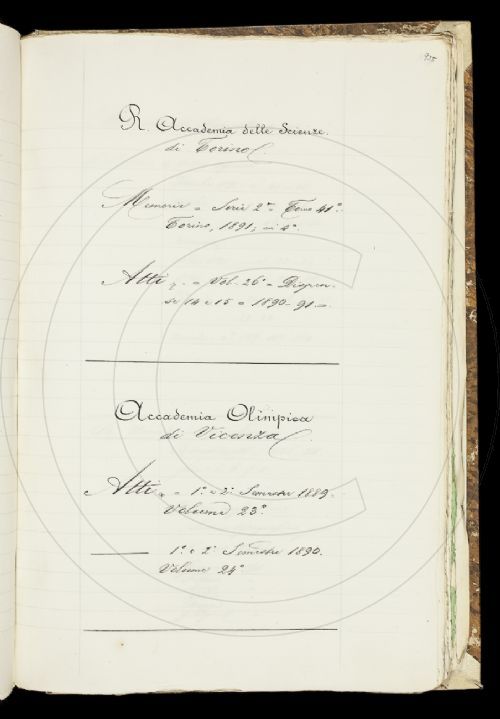 R. Accademia delle Scienze.
di Torino.
Memorie = Serie 2ª = Tomo 41º.
Torino, 1891, in 4º.
Atti = Vol. 26º = Dispen-
se 14 e 15 = 1890-91 =
Accademia Olimpica
di Vicenza.
Atti = 1º e 2º Semestre 1889.
Volume 23º.
1º e 2º Semestre 1890.
Volume 24º